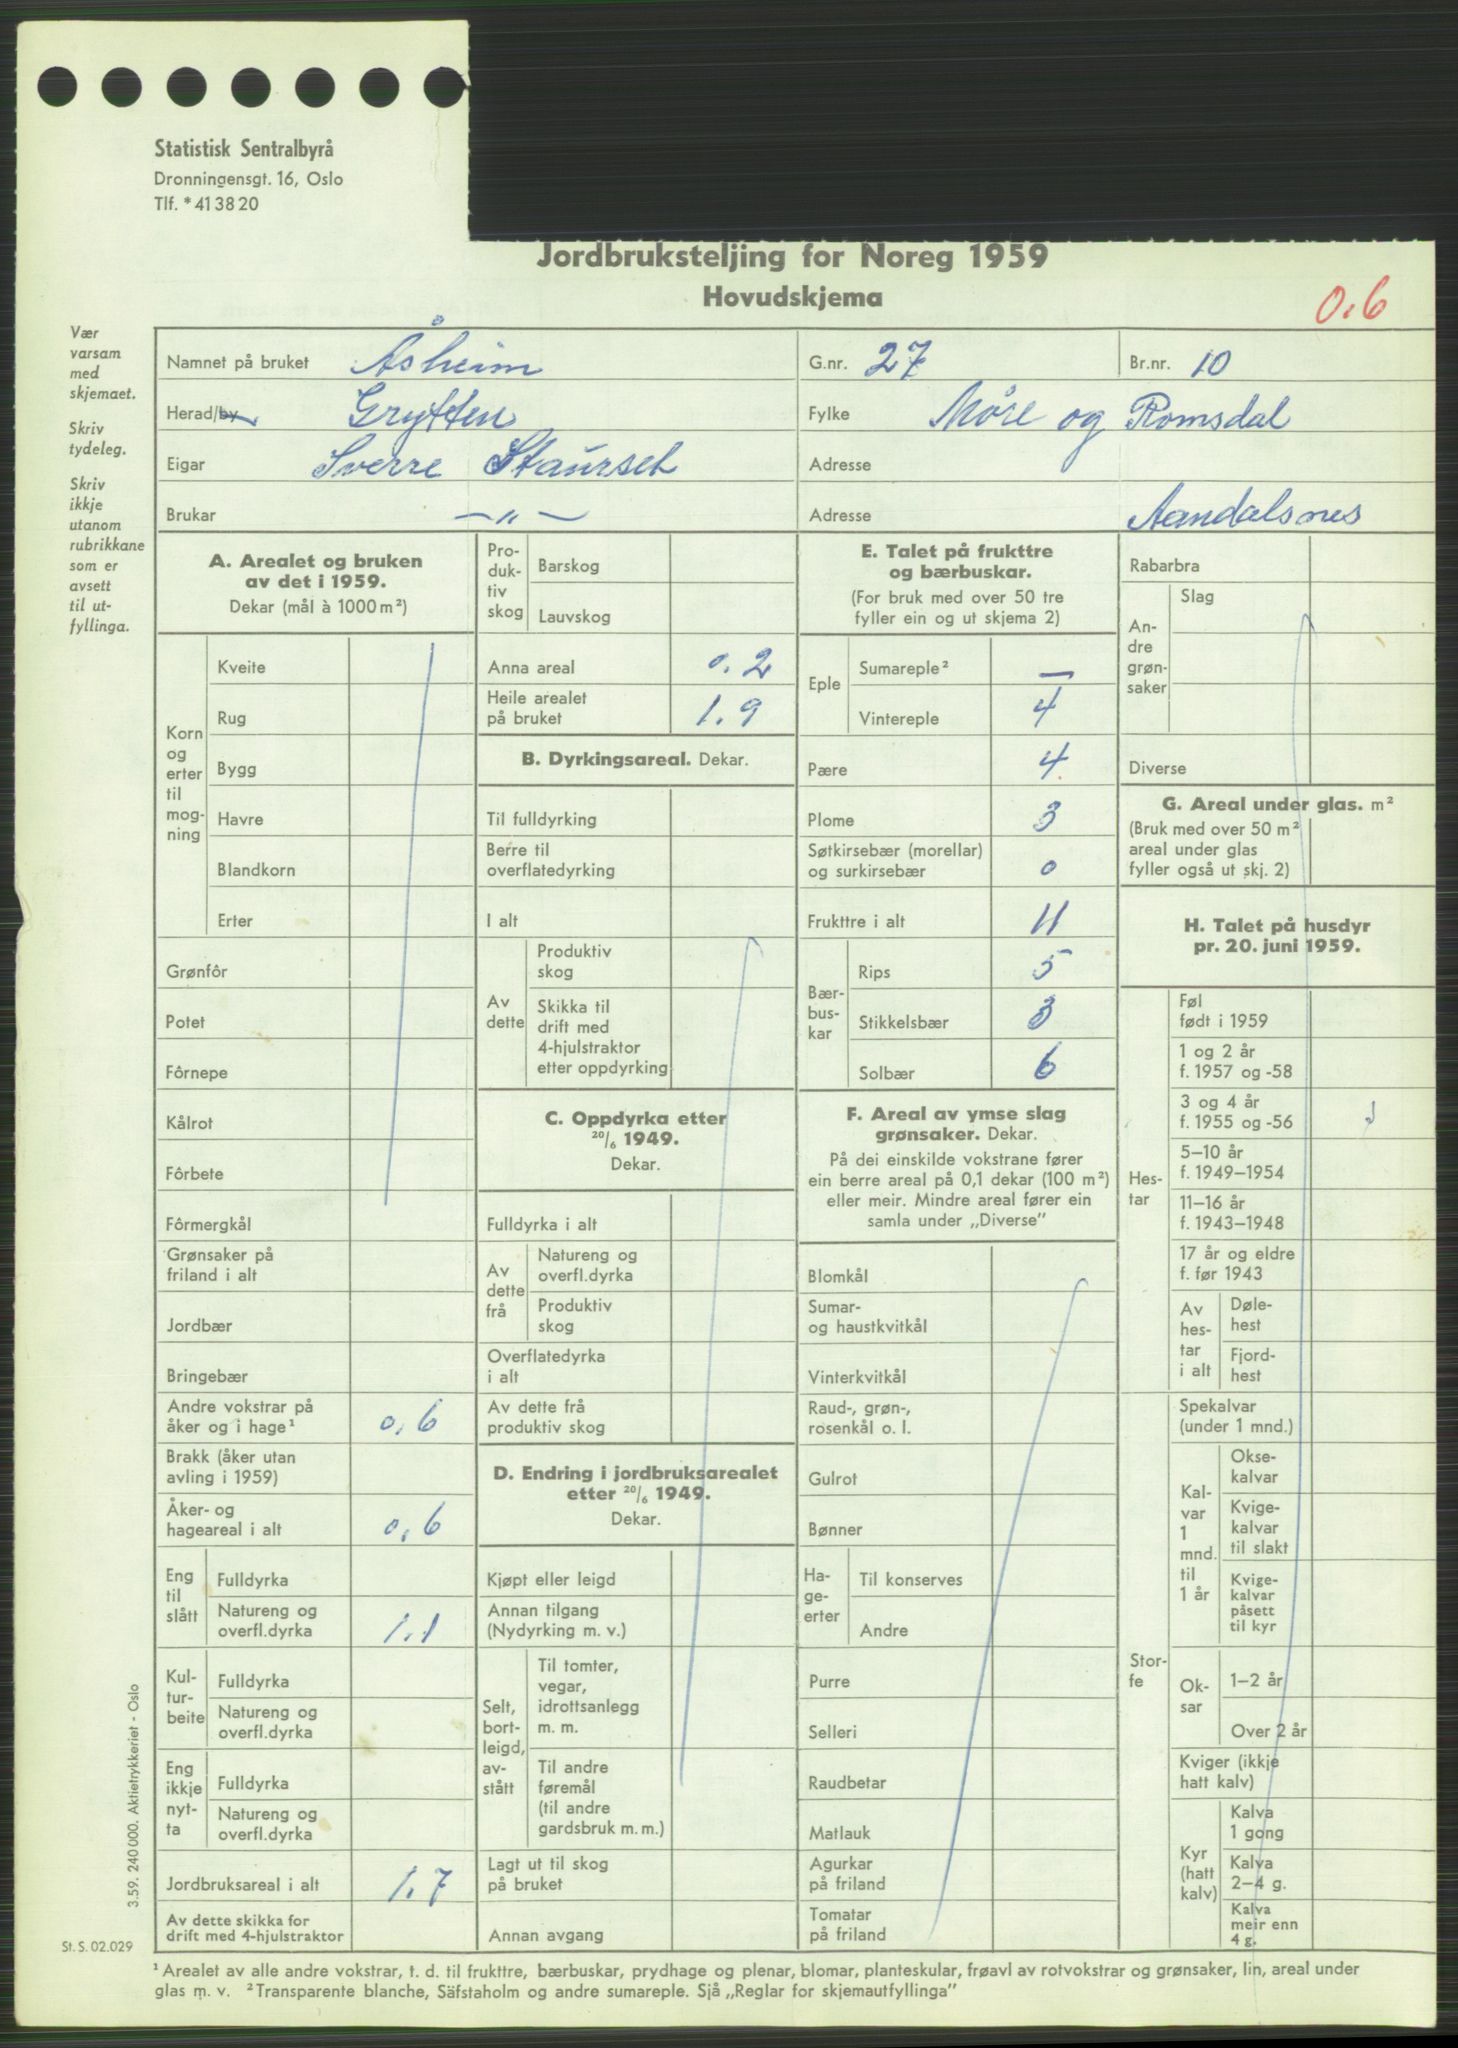 Statistisk Sentralbyrå
Dronningensgt. 16, Oslo
Tlf. * 41 38 20
Jordbruksteljing for Noreg 1959
Hovudskjema
0.6
Vær
varsam
med
skjemaet.
Skriv
tydeleg.
Skriv
ikkje
utanom
rubrikkane
som er
avsett
til ut-
fyllinga.
Namnet på bruket Åsheim G.nr. 27 Br.nr. 10
Herad/by Grytten Fylke Møre og Romsdal
Eigar Sverre Staurset Adresse
Brukar —„— Adresse Aandalsnes
A. Arealet og bruken
av det i 1959.
Dekar (mål à 1000 m²)
Korn
og
erter
til
mog-
ning
Kveite
Rug
Bygg
Havre
Blandkorn
Erter
Grønfôr
Potet
Fôrnepe
Kålrot
Fôrbete
Fôrmergkål
Grønsaker på
friland i alt
Jordbær
Bringebær
Andre vokstrar på
åker og i hage¹ 0,6
Brakk (åker utan
avling i 1959)
Åker- og
hageareal i alt 0,6
Eng
til
slått
Fulldyrka
Natureng og
overfl.dyrka 1.1
Kul-
tur-
beite
Fulldyrka
Natureng og
overfl.dyrka
Eng
ikkje
nyt-
ta
Fulldyrka
Natureng og
overfl.dyrka
Jordbruksareal i alt 1.7
Av dette skikka for
drift med 4-hjulstraktor
Pro-
duk-
tiv
skog
Barskog
Lauvskog
Anna areal 0.2
Heile arealet
på bruket 1.9
B. Dyrkingsareal. Dekar.
Til fulldyrking
Berre til
overflatedyrking
I alt
Av
dette
Produktiv
skog
Skikka til
drift med
4-hjulstraktor
etter oppdyrking
C. Oppdyrka etter
20/6 1949.
Dekar.
Fulldyrka i alt
Av
dette
frå
Natureng og
overfl.dyrka
Produktiv
skog
Overflatedyrka
i alt
Av dette frå
produktiv skog
D. Endring i jordbruksarealet
etter 20/6 1949.
Dekar.
Kjøpt eller leigd
Annan tilgang
(Nydyrking m. v.)
Selt,
bort-
leigd,
av-
stått
Til tomter,
vegar,
idrottsanlegg
m. m.
Til andre
føremål
(til andre
gardsbruk m. m.)
Lagt ut til skog
på bruket
Annan avgang
E. Talet på frukttre
og bærbuskar.
(For bruk med over 50 tre
fyller ein og ut skjema 2)
Eple
Sumareple² —
Vintereple 4
Pære 4
Plome 3
Søtkirsebær (morellar)
og surkirsebær 0
Frukttre i alt 11
Bær-
bus-
kar
Rips 5
Stikkelsbær 3
Solbær 6
F. Areal av ymse slag
grønsaker. Dekar.
På dei einskilde vokstrane fører
ein berre areal på 0,1 dekar (100 m²)
eller meir. Mindre areal fører ein
samla under „Diverse”
Blomkål
Sumar-
og haustkvitkål
Vinterkvitkål
Raud-, grøn-,
rosenkål o. l.
Gulrot
Bønner
Ha-
ge-
erter
Til konserves
Andre
Purre
Selleri
Raudbetar
Matlauk
Agurkar
på friland
Tomatar
på friland
Rabarbra
An-
dre
grøn-
saker
Slag
Diverse
G. Areal under glas. m²
(Bruk med over 50 m²
areal under glas
fyller også ut skj. 2)
H. Talet på husdyr
pr. 20. juni 1959.
Hes-
tar
Føl
født i 1959
1 og 2 år
f. 1957 og -58
3 og 4 år
f. 1955 og -56
5–10 år
f. 1949–1954
11–16 år
f. 1943–1948
17 år og eldre
f. før 1943
Av
hes-
tar
i alt
Døle-
hest
Fjord-
hest
Stor-
fe
Spekalvar
(under 1 mnd.)
Kal-
var
1
mnd.
til
1 år
Okse-
kalvar
Kvige-
kalvar
til slakt
Kvige-
kalvar
påsett
til kyr
Ok-
sar
1–2 år
Over 2 år
Kviger (ikkje
hatt kalv)
Kyr
(hatt
kalv)
Kalva
1 gong
Kalva
2–4 g.
Kalva
meir enn
4 g.
3.59. 240 000. Aktietrykkeriet - Oslo
St. S. 02.029
¹ Arealet av alle andre vokstrar, t. d. til frukttre, bærbuskar, prydhage og plenar, blomar, planteskular, frøavl av rotvokstrar og grønsaker, lin, areal under
glas m. v. ² Transparente blanche, Säfstaholm og andre sumareple. Sjå „Reglar for skjemautfyllinga”